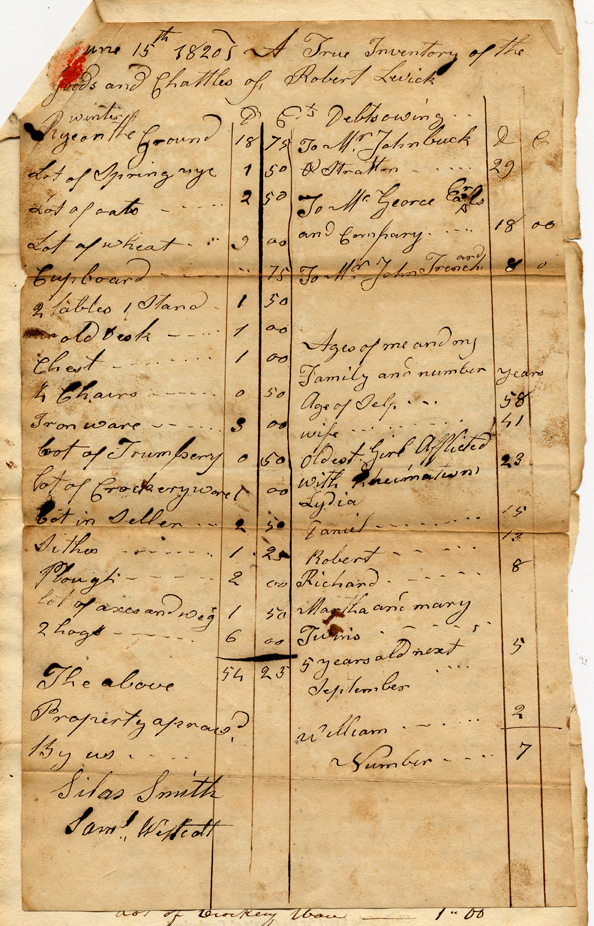 June 15th 1820 A True Inventory of the
goods and Chattles of Robert Lewick
D Cts
winter
Rye on the Ground 18 75
Lot of Spring rye 1 50
Lot of oats 2 50
Lot of wheat 9 00
Cupboard " 75
2 tables 1 Stand 1 50
old Desk 1 00
Chest 1 00
4 Chairs 0 50
Iron ware 3 00
Lot of Trumpery 0 50
Lot of Crockery ware 1 00
Lot in Seller 2 50
Sithes 1 25
Plough 2 00
Lot of axes and weg 1 50
2 hogs 6 00
54 25
The above
Property apraisd
By us
Silas Smith
Saml Westcott
Debts owing
To Mr John buck D C
& Stratton 29
To Mr George
and Company 18 00
To Mr John Trenchard 8 0
Ages of me and my
Family and number years
Age of Self 58
wife 41
oldest Girl Afflicted
with Rheumatism 23
Lydia
Daniel 15
Robert 13
Richard 8
Martha and mary
Twins
5 years old next 5
September
William 2
Number 7
Lot of Crockery Ware 1"00